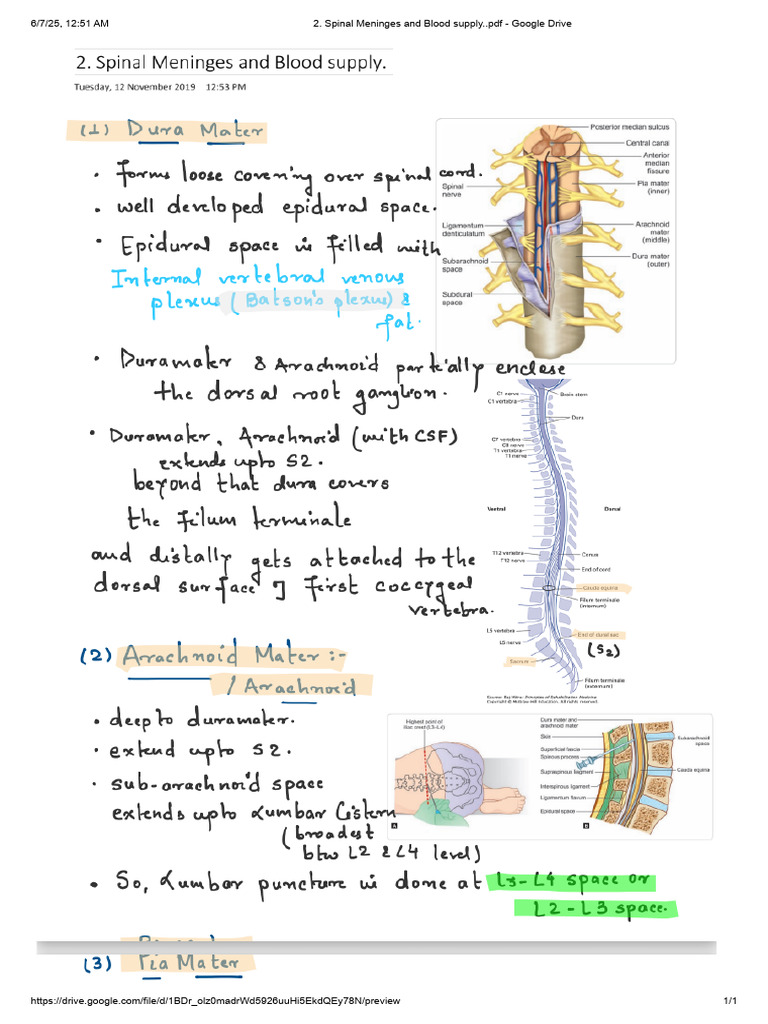 6/7/25, 12:51 AM
2. Spinal Meninges and Blood supply..pdf - Google Drive
2. Spinal Meninges and Blood supply.
Tuesday, 12 November 2019 12:53 PM
(1) Dura Mater
• forms loose covering over spinal cord.
• well developed epidural space.
• Epidural space is filled with
Internal vertebral venous
plexus (Batson's plexus) &
fat.
Posterior median sulcus
Central canal
Anterior
median
fissure
Spinal
nerve
Pia mater
(inner)
Ligamentum
denticulatum
Arachnoid
mater
(middle)
Subarachnoid
space
Dura mater
(outer)
Subdural
space
• Duramater & Arachnoid partially enclose
the dorsal root ganglion.
• Duramater, Arachnoid (with CSF)
extends upto S2.
beyond that dura covers
the filum terminale
and distally gets attached to the
dorsal surface of first coccygeal
vertebra.
C1 nerve
C1 vertebra
Brain stem
Dura
C7 vertebra
C8 nerve
T1 vertebra
T1 nerve
Ventral
Dorsal
T12 vertebra
T12 nerve
Conus
End of cord
Cauda equina
Filum terminale
(internum)
L5 vertebra
L5 nerve
End of dural sac
(S2)
Sacrum
Filum terminale
(externum)
(2) Arachnoid Mater :-
/ Arachnoid
• deep to duramater.
• extend upto S2.
• sub-arachnoid space
extends upto Lumbar Cistern
(broadest
btw L2 & L4 level)
Highest point of
iliac crest (L3-L4)
A
Dura mater and
arachnoid mater
Skin
Superficial fascia
Spinous process
Supraspinous ligament
Interspinous ligament
Ligamentum flavum
Epidural space
Subarachnoid
space
Cauda equina
B
• So, Lumbar puncture is done at L3-L4 space or
L2-L3 space.
(3) Pia Mater
https://drive.google.com/file/d/1BDr_olz0madrWd5926uuHi5EkdQEy78N/preview
1/1